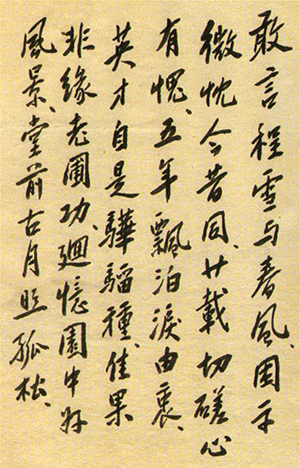 敢言程雪与春風、因子
微忱今昔同、廿載切磋心
有愧、五年飄泊淚由衷、
英才自是驊騮種、佳果
非緣老圃功、廻憶園中好
風景、堂前古月照孤松、